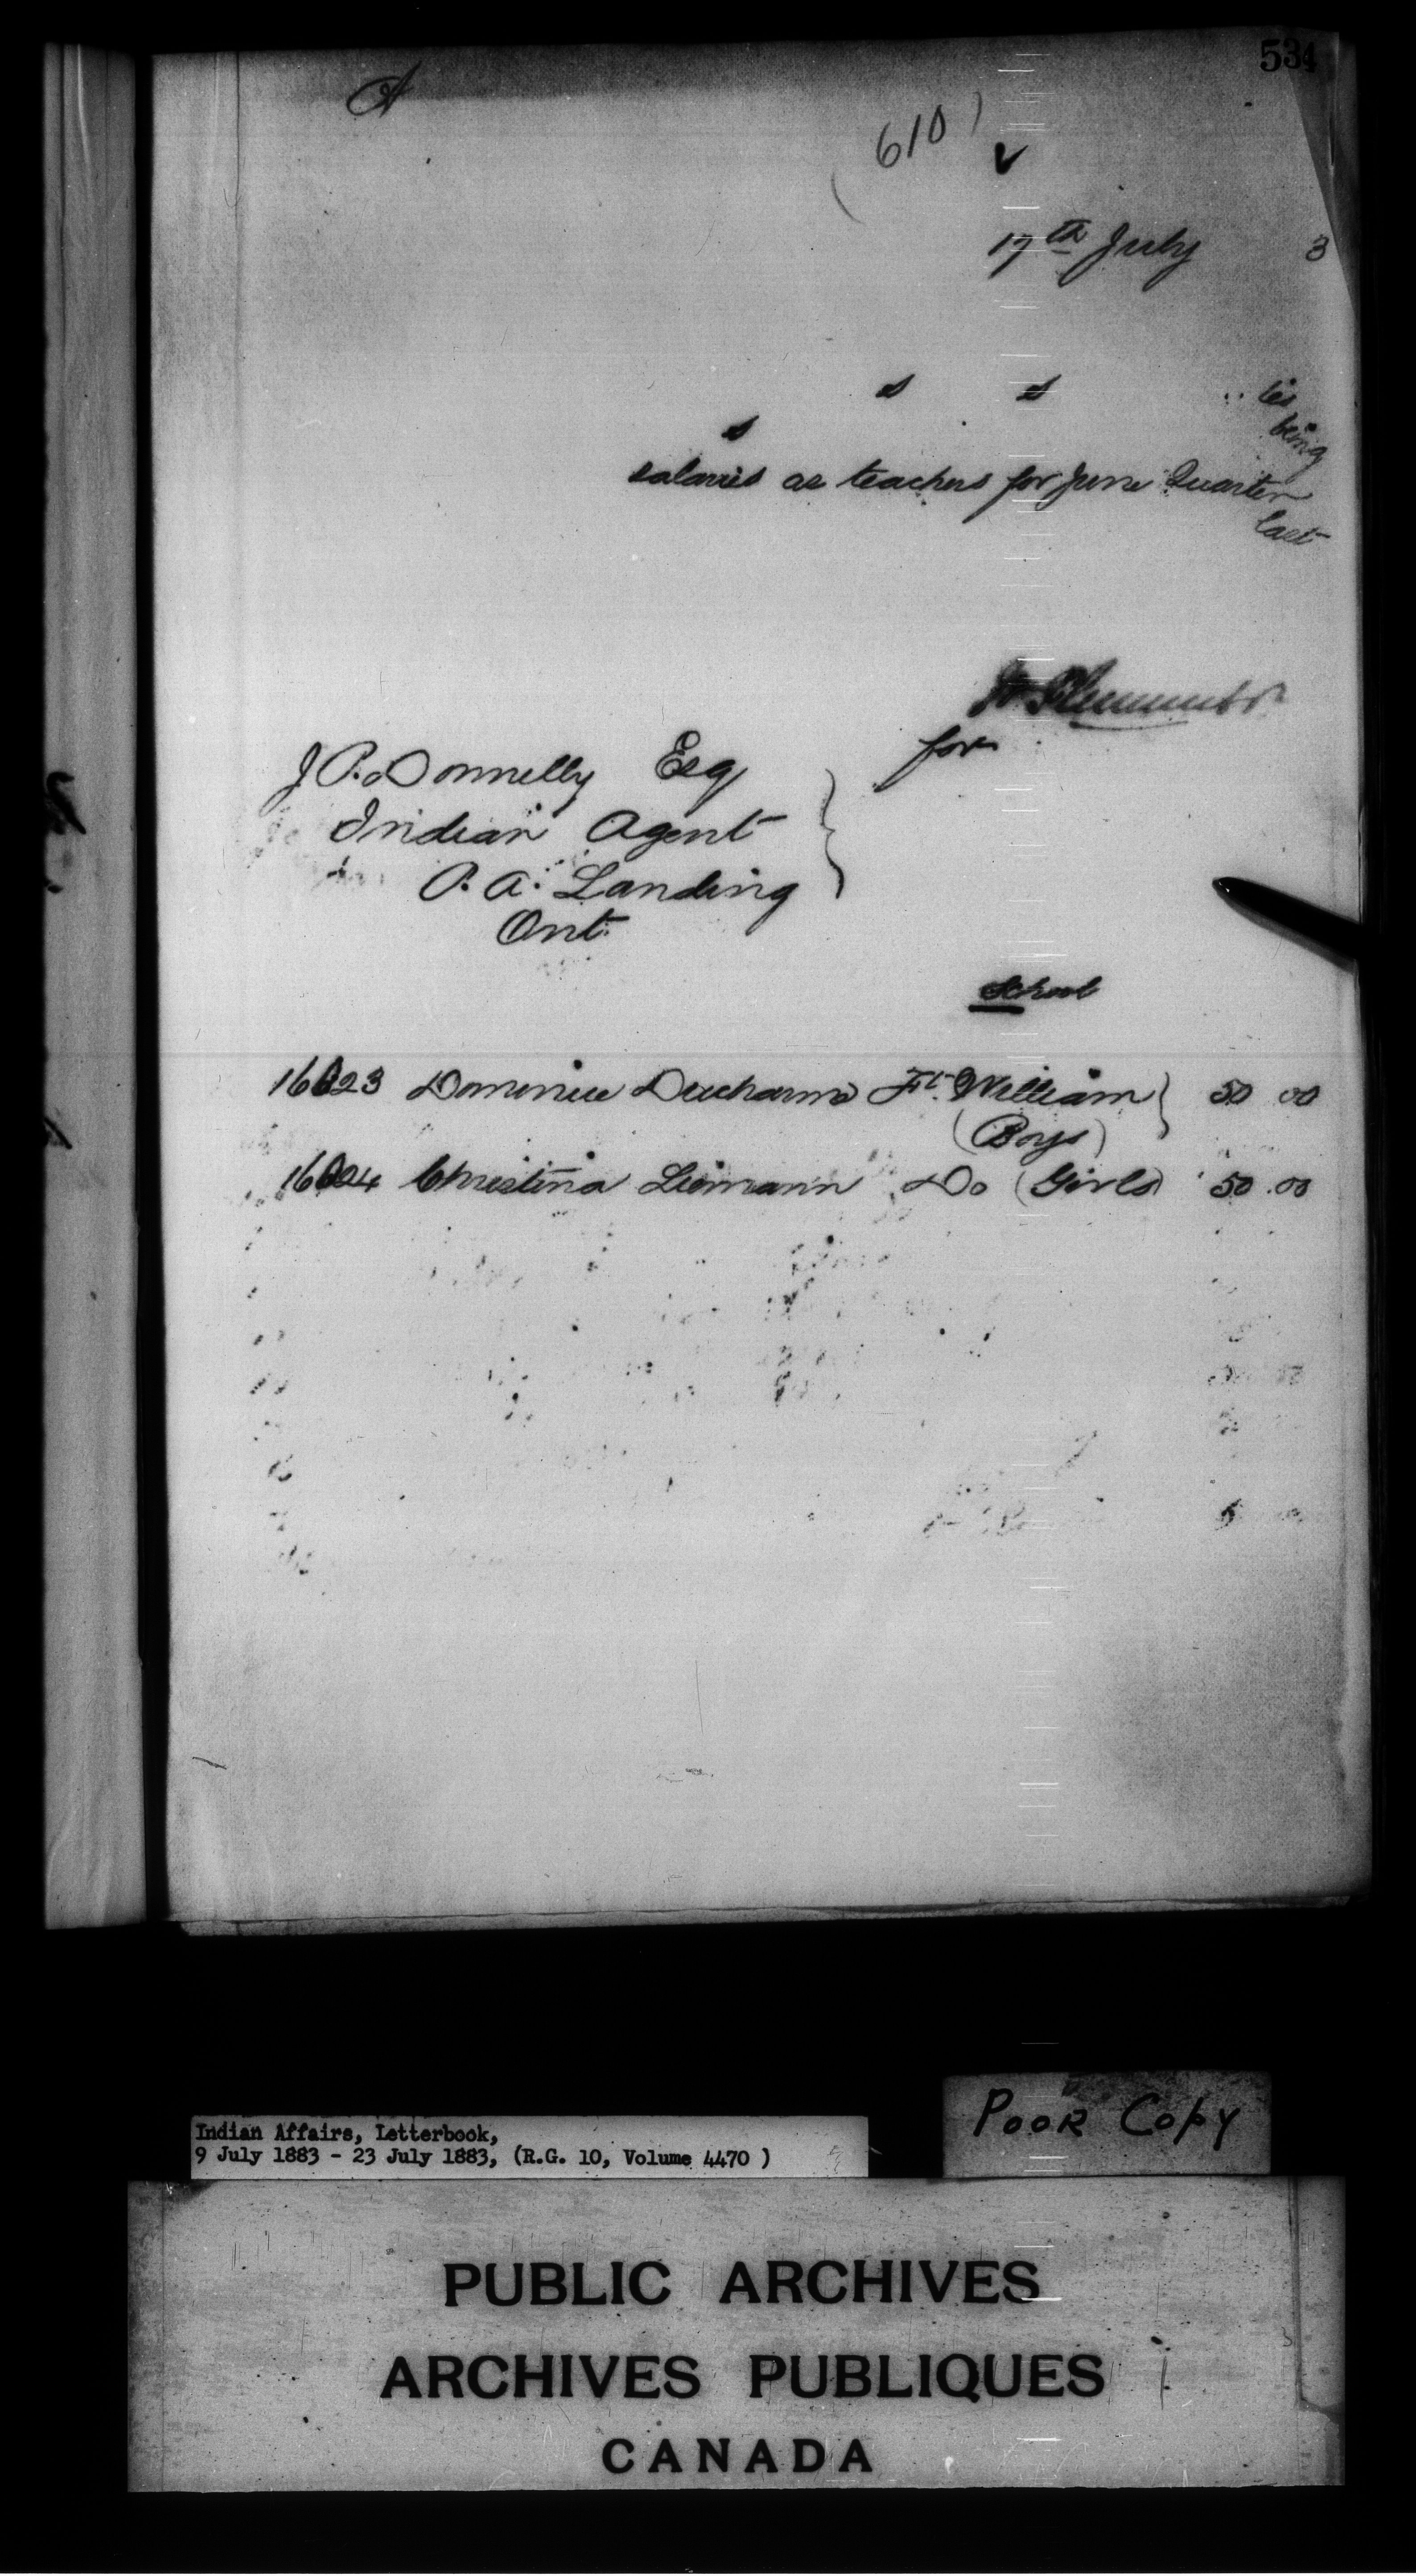 534
A
(610)
17th July 3
s s ies
s being
salaries as teachers for June Quarter
last
for
J. P. Donnelly Esq
Indian Agent
P. A. Landing
Ont.
School
Ducharme Ft. William } 50 00
(Boys)
Christina Do (Girls) 50.00
Indian Affairs, Letterbook,
9 July 1883 - 23 July 1883, (R.G. 10, Volume 4470 )
POOR COPY
PUBLIC ARCHIVES
ARCHIVES PUBLIQUES
CANADA